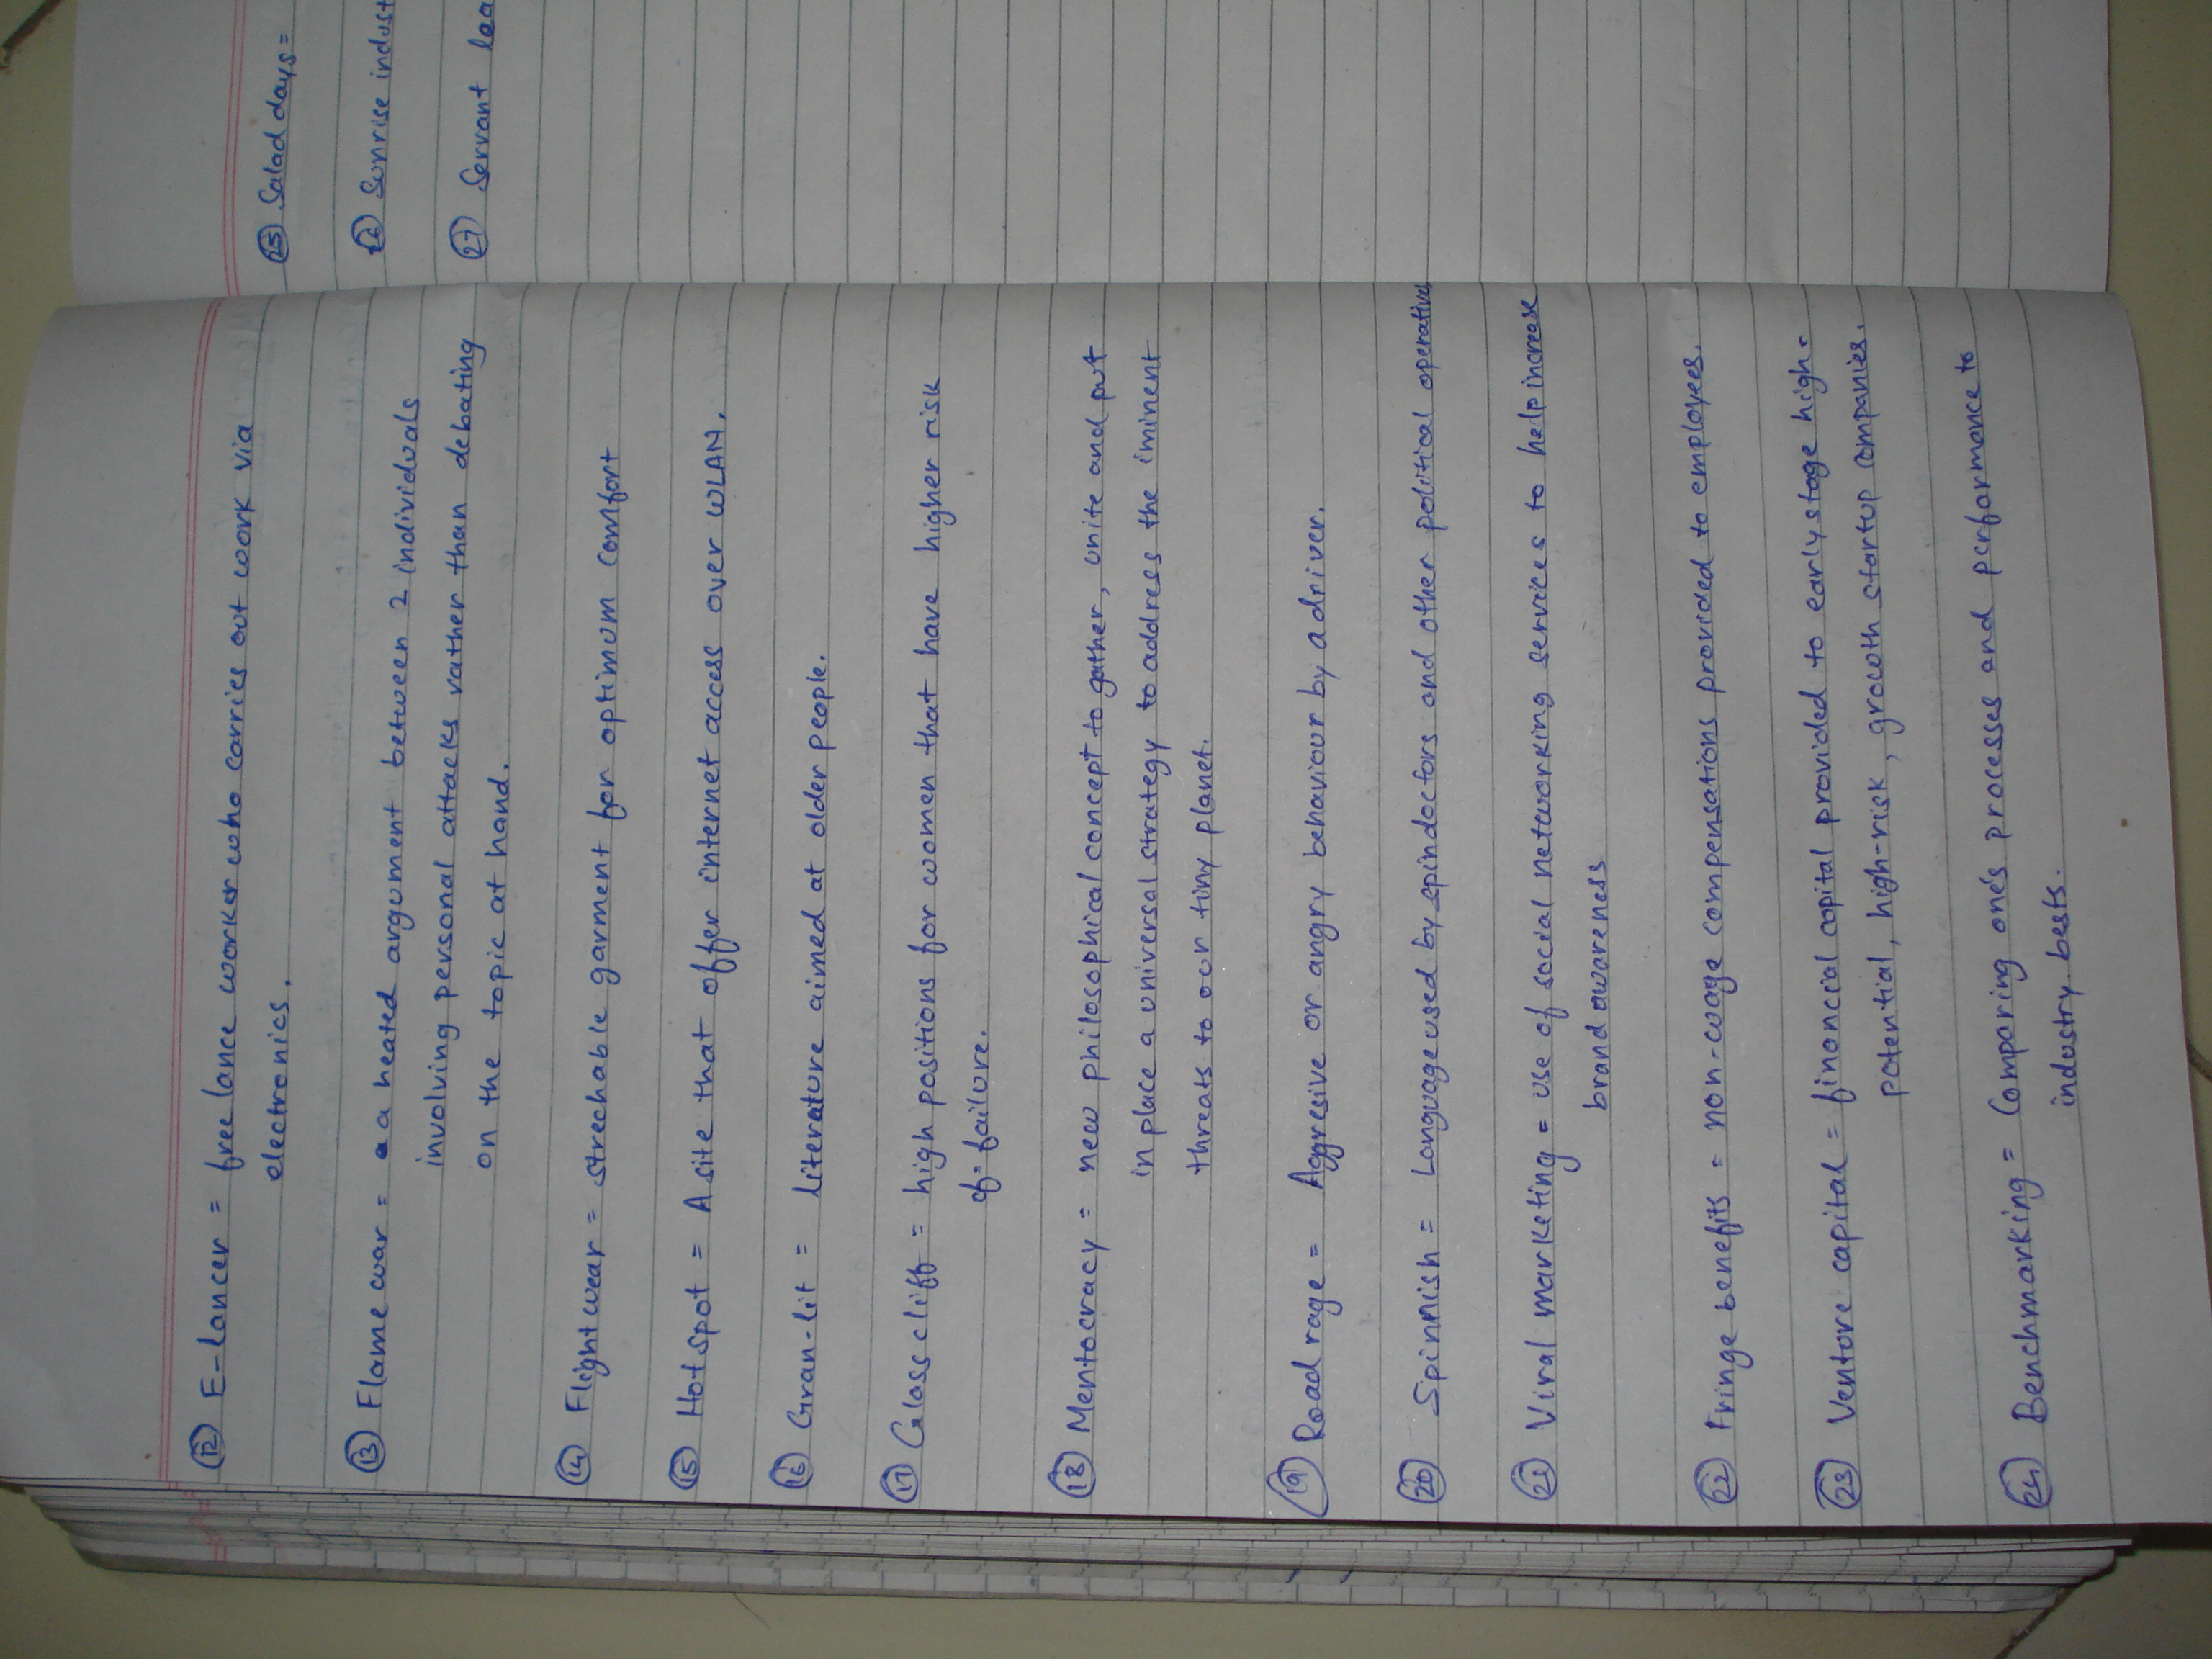 12 E-lancer = free lance worker who carries out work via
electronics.
13 Flame war = a heated argument between 2 individuals
involving personal attacks rather than debating
on the topic at hand.
14 Flight wear = strechable garment for optimum comfort
15 Hot spot = A site that offer internet access over WLAN.
16 Gran-lit = literature aimed at older people.
17 Glass cliff = high positions for women that have higher risk
of failure.
18 Mentocracy = new philosophical concept to gather, unite and put
in place a universal strategy to address the iminent
threats to our tiny planet.
19 Road rage = Aggresive or angry behaviour by a driver.
20 Spinnish = Language used by spindoctors and other political operatives
21 Viral marketing = use of social networking services to help increase
brand awareness
22 Fringe benefits = non-wage compensations provided to employees.
23 Venture capital = financial capital provided to early stage high-
potential, high-risk, growth startup companies.
24 Benchmarking = Comparing one's processes and performance to
industry bests.
25 Salad days =
26 Sunrise indust
27 Servant lea